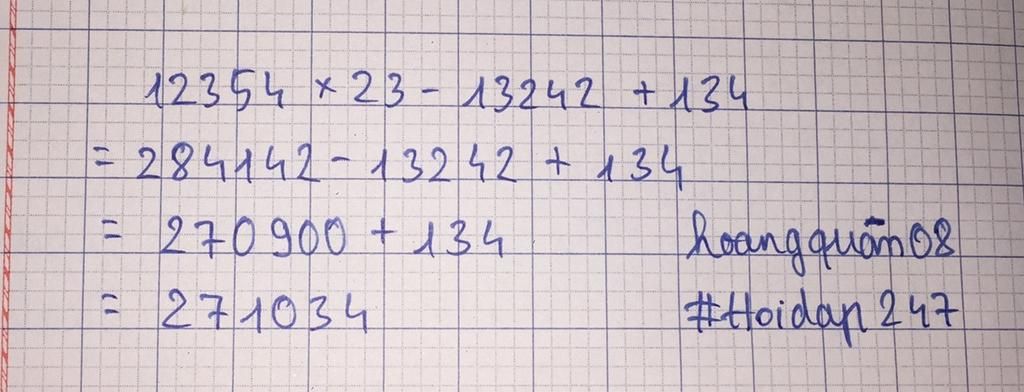 12354 × 23 - 13242 + 134
= 284142 - 13242 + 134
= 270900 + 134
= 271034
hoangquân08
#Hoidap247